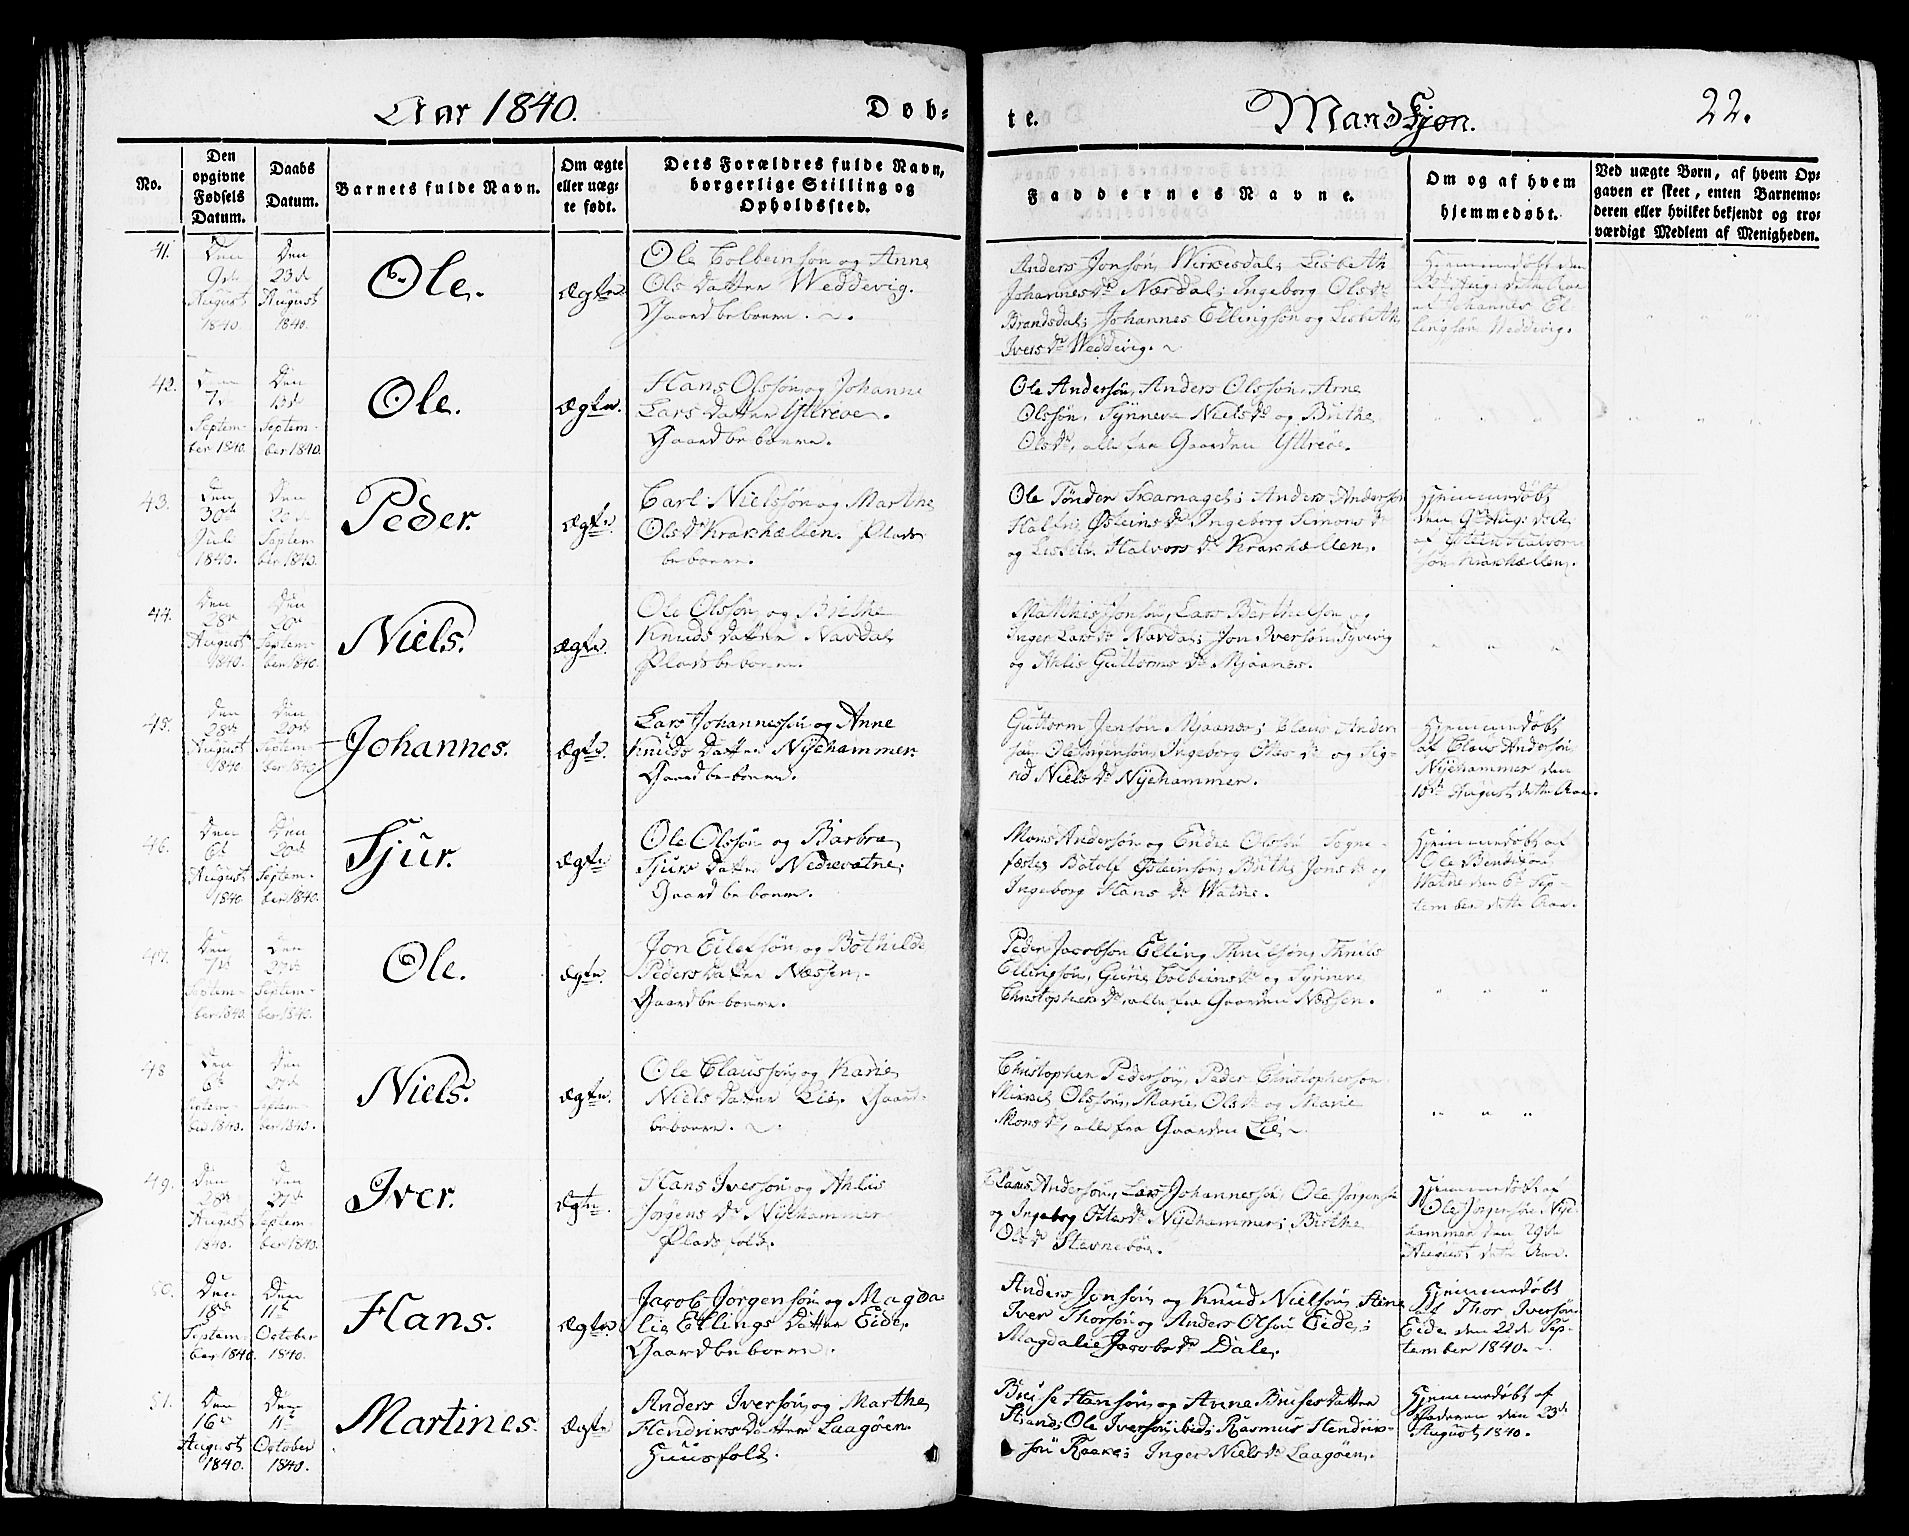 Aar 1840. Døb-
te. Mandkjøn. 22.
No.
Den opgivne Fødsels Datum.
Daabs Datum.
Barnets fulde Navn.
Om ægte eller uægte født.
Dets Forældres fulde Navn, borgerlige Stilling og Opholdssted.
Faddernes Navne.
Om og af hvem hjemmedøbt.
Ved uægte Børn, af hvem Opgaven er skeet, enten Barnemoderen eller hvilket bekjendt og troværdigt Medlem af Menigheden.
41.
Den 9de August 1840.
Den 23de August 1840.
Ole.
Ægte.
Ole Colbeinsøn og Anne
Ols Datter Weddevig.
Gaardbeboere.
Anders Jonsøn, Wirkesdal; Lisbeth
Johannesdr Nærdal; Ingeborg Olsdr
Brandsdal; Johannes Ellingsøn og Lisbeth
Ivers dr Weddevig.
Hjemmedøbt den
Aug: dette Aar
af Johannes El-
lingsøn Weddevig.
42.
7de September 1840.
Den 13de September 1840.
Ole.
Ægte.
Hans Olssøn og Johanne
Lars Datter Yttreøe.
Gaardbeboere.
Ole Andersøn, Anders Olssøn, Arne
Olssøn, Synneve Nielsdr og Birthe
Olsdr, alle fra Gaarden Yttreøe.
43.
Den 30te Juli 1840.
Den September 1840.
Peder.
Ægte.
Carl Nielssøn og Marthe
Olsdr Krakhællen. Plads-
beboere.
Ole Tønder Skarnaget; Anders Andersøn
Østeinsdr Ingeborg Simonsdr
og Halvorsdr Krakhællen.
Hjemmedøbt
den 9de Aug: d. A.
af Østen Halvor-
søn Krakhællen.
44.
Den 28de August 1840.
Den 20de September 1840.
Niels.
Ægte.
Ole Olssøn og Birthe
Knuds Datter Navdal
Pladsbeboere.
Matthis Jonsøn, Lars Barthelsøn og
Inger Larsdr Navdal; Jon Iversøn Tyvevig
og Ahlis Guttorms dr Mjaanes.
45.
Den 28de August 1840
Den 20de September 1840
Johannes.
Ægte.
Lars Johannessøn og Anne
Knuds Datter Nyehammer.
Gaardbeboere.
Guttorm Jensøn Mjaanes; Claus Ander-
søn, Ole Jørgensøn, Ingeborg dr og Sig-
rid Niels dr Nyehammer.
Hjemmedøbt
af Claus Andersøn
Nyehammer den
dette Aar.
46.
Den 6te August 1840
Den 20de September 1840.
Sjur.
Ægte.
Ole Olssøn og Barbra
Sjurs Datter Nedrevatne.
Gaardbeboere.
Mons Andersøn og Endre Olssøn Sogne-
feste; Botolf Østeinsøn, Birthe Jonsdr og
Ingeborg Hans dr Watne.
Hjemmedøbt af
Ole Bendixøn
Watne den 6te Sep-
tember dette Aar.
47.
Den 7de September 1840.
Den 27de September 1840.
Ole.
Ægte.
Jon Eilertsøn og Bothilde
Peders Datter Næssen.
Gaardbeboere.
Peder Jacobson, Elling Thuelsøn, Thrues
Ellingsøn, Gurie Colbeinsdr og Synneve
Christophersdr, alle fra Gaarden Næssen.
48
Den 6te September 1840.
Den 27de September 1840.
Niels.
Ægte.
Ole Claussøn og Karie
Niels Datter Lie. Gaard-
beboere.
Christopher Pedersøn, Peder Christophersøn,
Mikkel Olssøn, Marie Olsdr og Marie
Monsdr, alle fra Gaarden Lie.
49.
Den 28de August 1840.
Den 27de September 1840.
Iver.
Ægte.
Hans Iversøn og Ahlis
Jørgens dr Nyehammer
Pladsfolk.
Claus Andersøn, Lars Johannessøn, Ole Jørgensøn
og Ingeborg dr Nyehammer; Birthe
Olsdr Stevnebøe.
Hjemmedøbt af
Ole Jørgensøn Nye-
hammer den 29de
August dette Aar.
50.
Den 18de September 1840.
Den 11te October 1840.
Hans.
Ægte.
Jacob Jørgensøn og Magda-
lie Ellings Datter Eide.
Gaardbeboere.
Anders Jonsøn og Knud Nielsøn,
Iver Thorsøn og Anders Olsøn Eide;
Magdalie Jacobsdr Dale.
Hjemmedøbt
af Thor Iversøn
Eide den 22de Sep-
tember 1840.
51.
Den 16de August 1840.
Den 11te October 1840.
Martines.
Ægte
Anders Iversøn og Marthe
Hendriks Datter Laagøen.
Huusfolk.
Hansøn og Anne Datter
Strand; Ole Iversøn ibid; Rasmus Hendrik-
søn Raake; Inger Niels dr Laagøen.
Hjemmedøbt af
Faderen den 23de
August 1840.